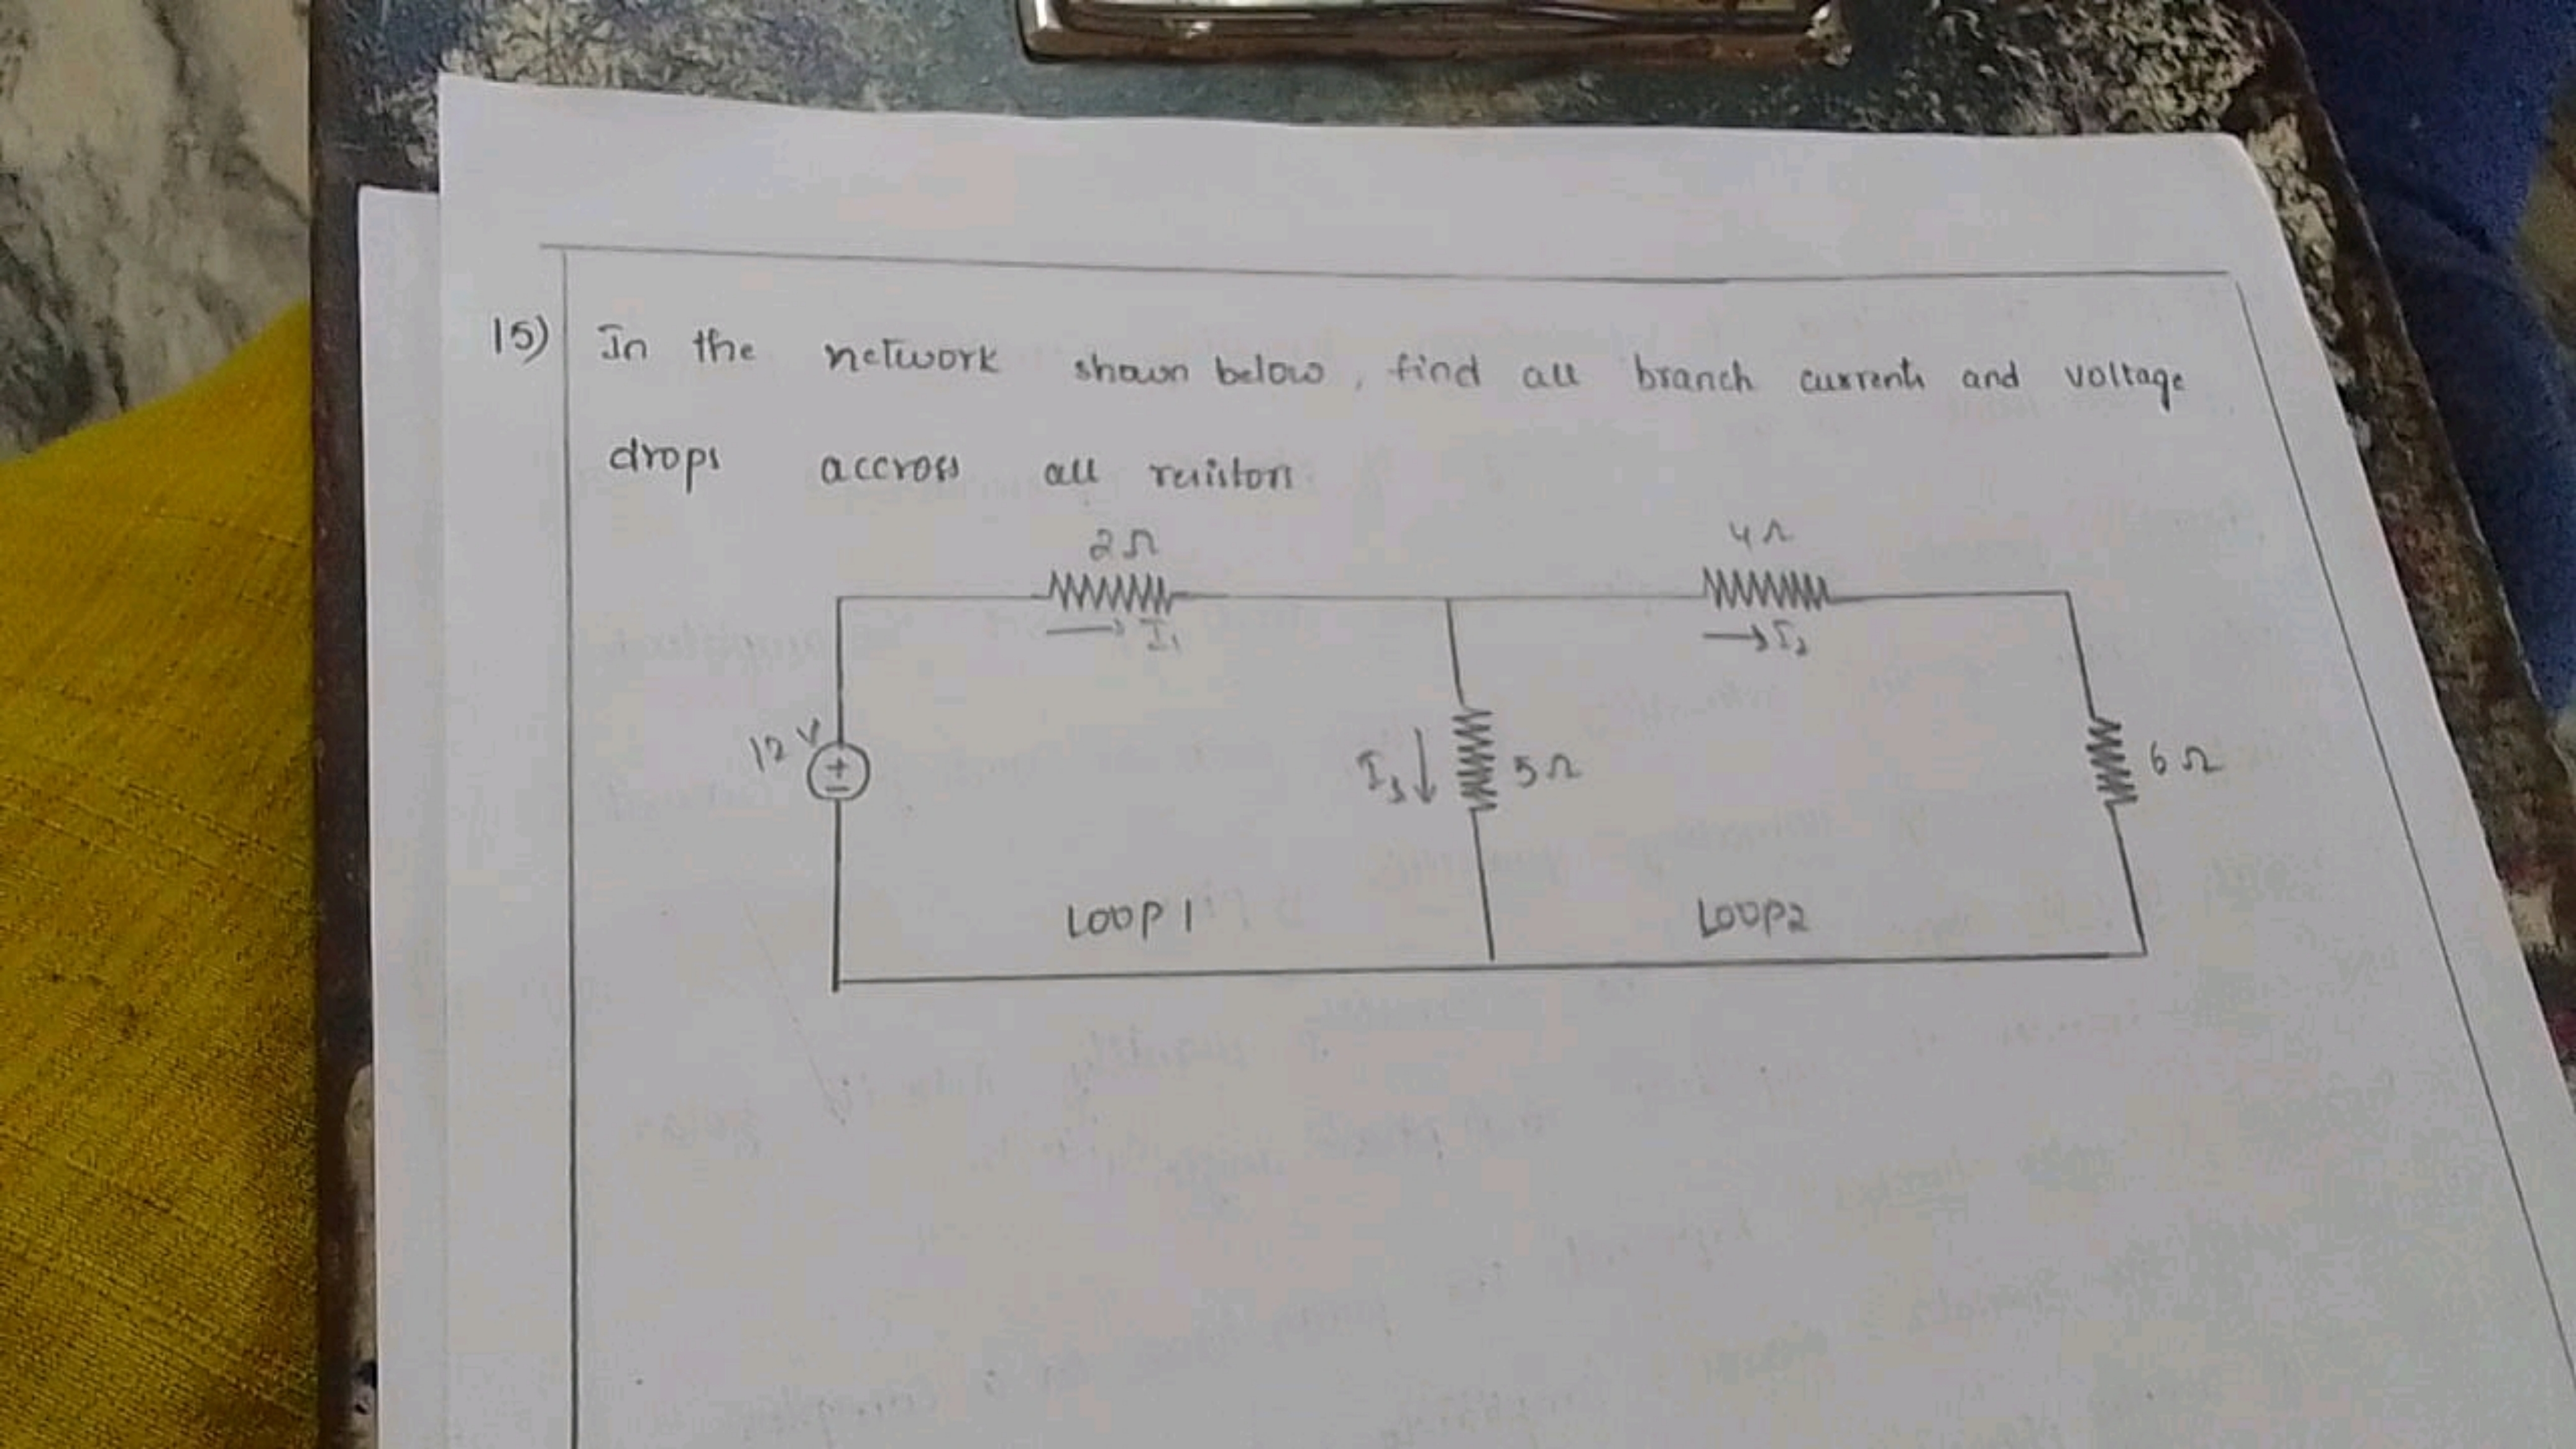 15) In the network shown below, find all branch currents and voltage
drops accross all resistors
2Ω
4Ω
→ I₁
→ I₂
12 V
+
−
I₃ ↓
5Ω
6Ω
LOOP 1
LOOP2